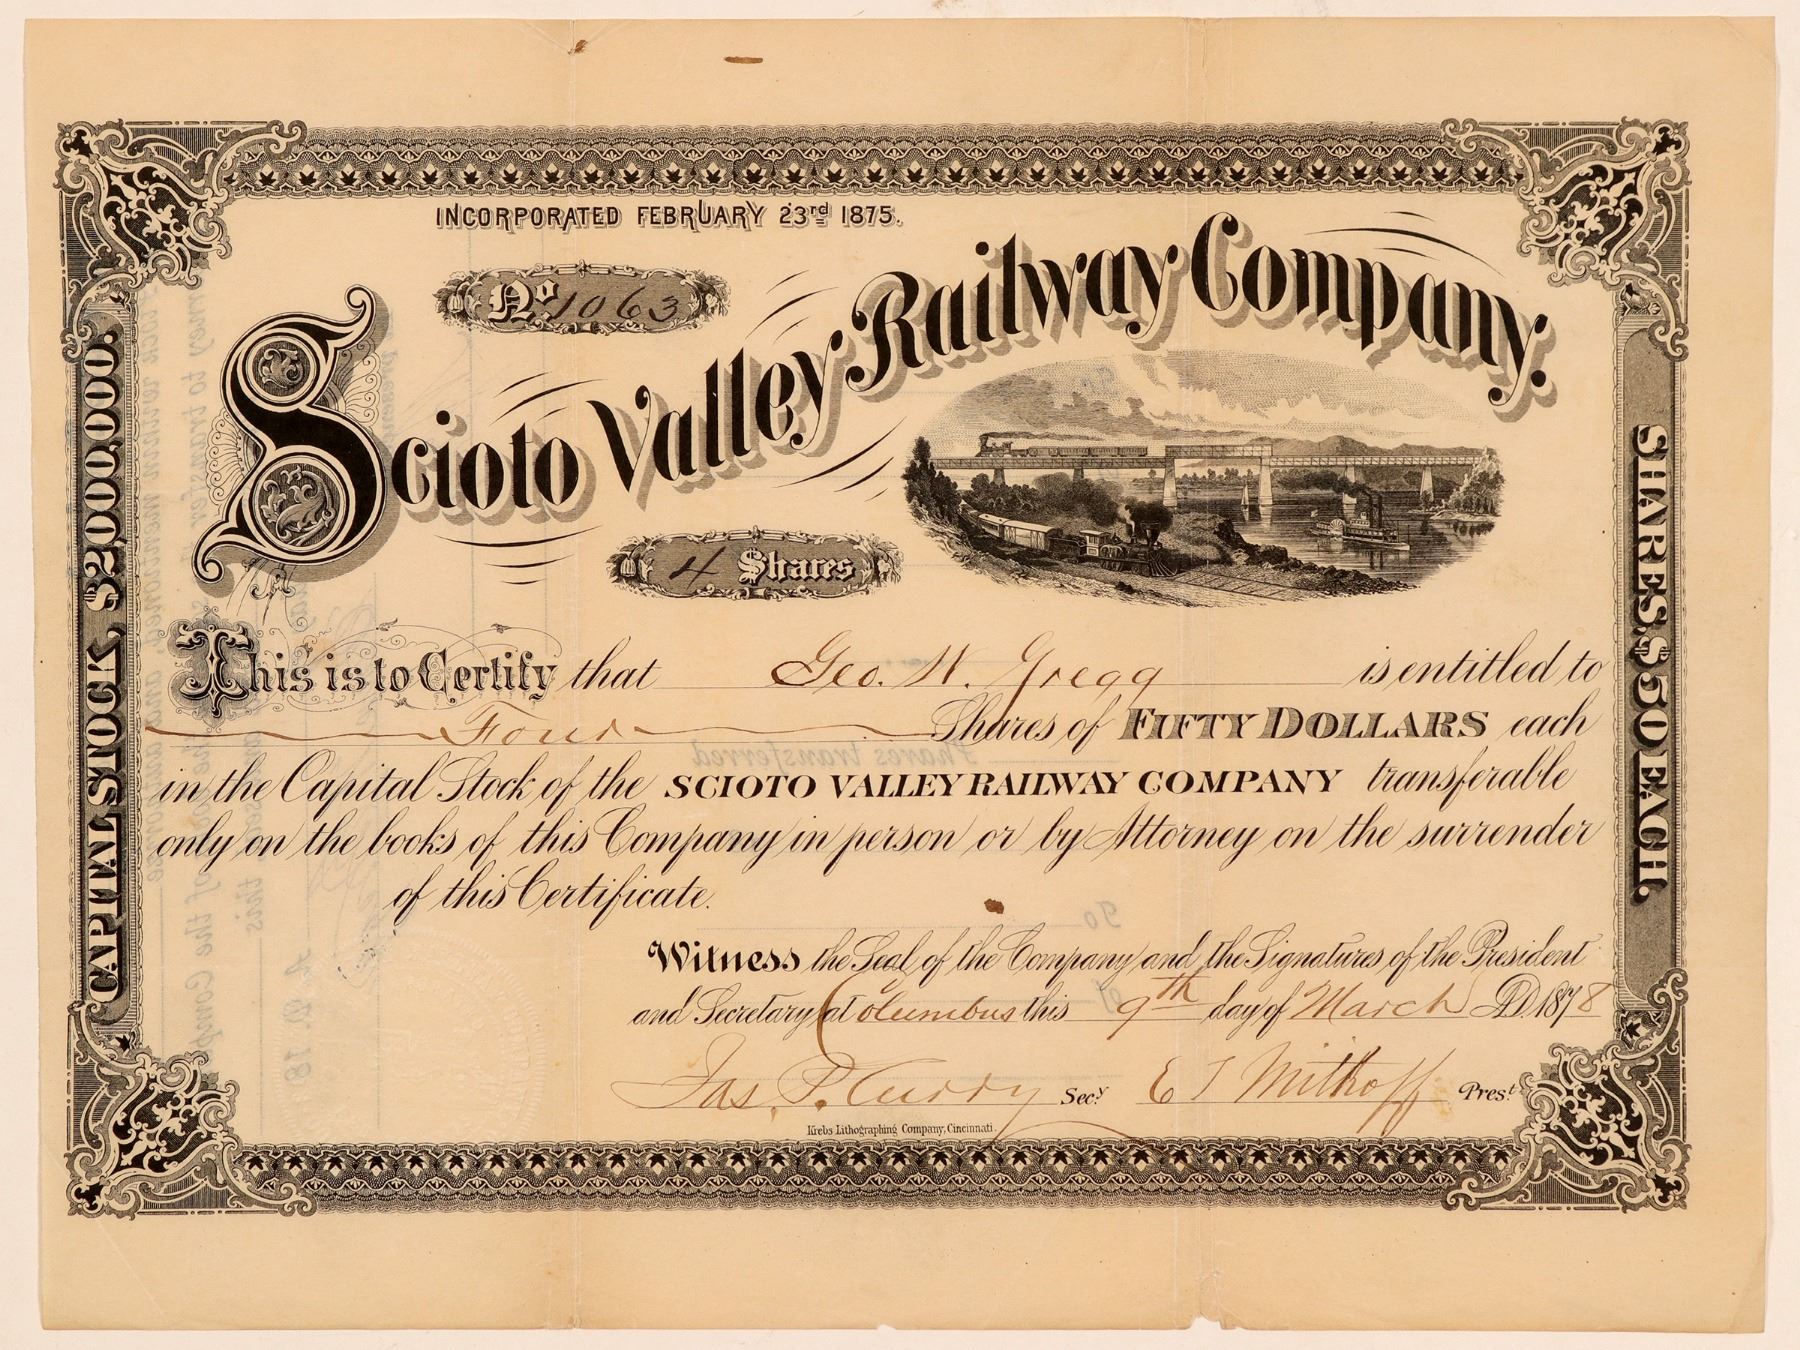 INCORPORATED FEBRUARY 23rd 1875.
No 1063
Scioto Valley Railway Company.
4 Shares
This is to Certify that Geo. W. Gregg is entitled to
Four Shares of FIFTY DOLLARS each
in the Capital Stock of the SCIOTO VALLEY RAILWAY COMPANY transferable
only on the books of this Company in person or by Attorney on the surrender
of this Certificate.
Witness the Seal of the Company and the Signatures of the President
and Secretary at Columbus this 9th day of March A.D. 1878
Jas. P. Curry Secy. E T Mithoff Prest.
Krebs Lithographing Company, Cincinnati.
CAPITAL STOCK, $2,000,000.
SHARES, $50 EACH.